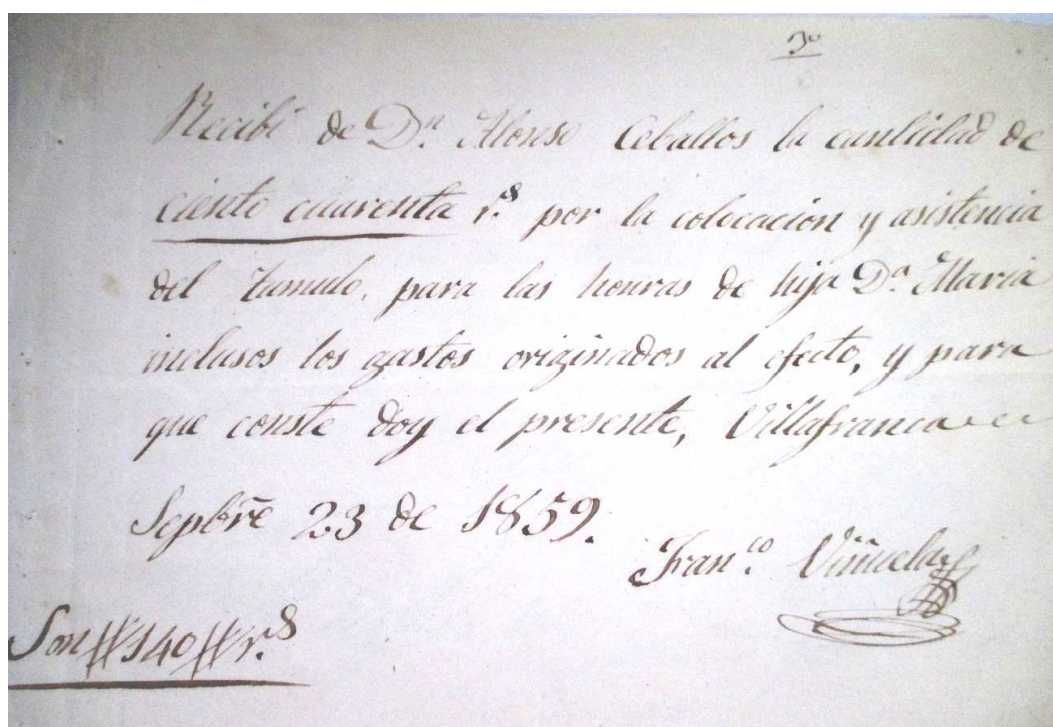 Recibi de Dn. Alonso Ceballos la cantidad de
ciento cuarenta r.s por la colocacion y asistencia
del tumulo, para las honras de hija Da. Maria
inclusos los gastos originados al efecto, y para
que conste doy el presente, Villafranca
Sepbre 23 de 1859.
Franco. Viñuelas
Son #140# r.s